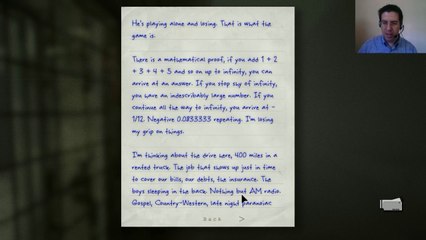 He's playing alone and losing. That is what the
game is.
There is a mathematical proof, if you add 1 + 2
+ 3 + 4 + 5 and so on up to infinity, you can
arrive at an answer. If you stop shy of infinity,
you have an indescribably large number. If you
continue all the way to infinity, you arrive at -
1/12. Negative 0.0833333 repeating. I'm losing
my grip on things.
I'm thinking about the drive here, 400 miles in
a rented truck. The job that shows up just in time
to cover our bills, our debts, the insurance. The
boys sleeping in the back. Nothing but AM radio.
Gospel, Country-Western, late night paranoiac
Back >